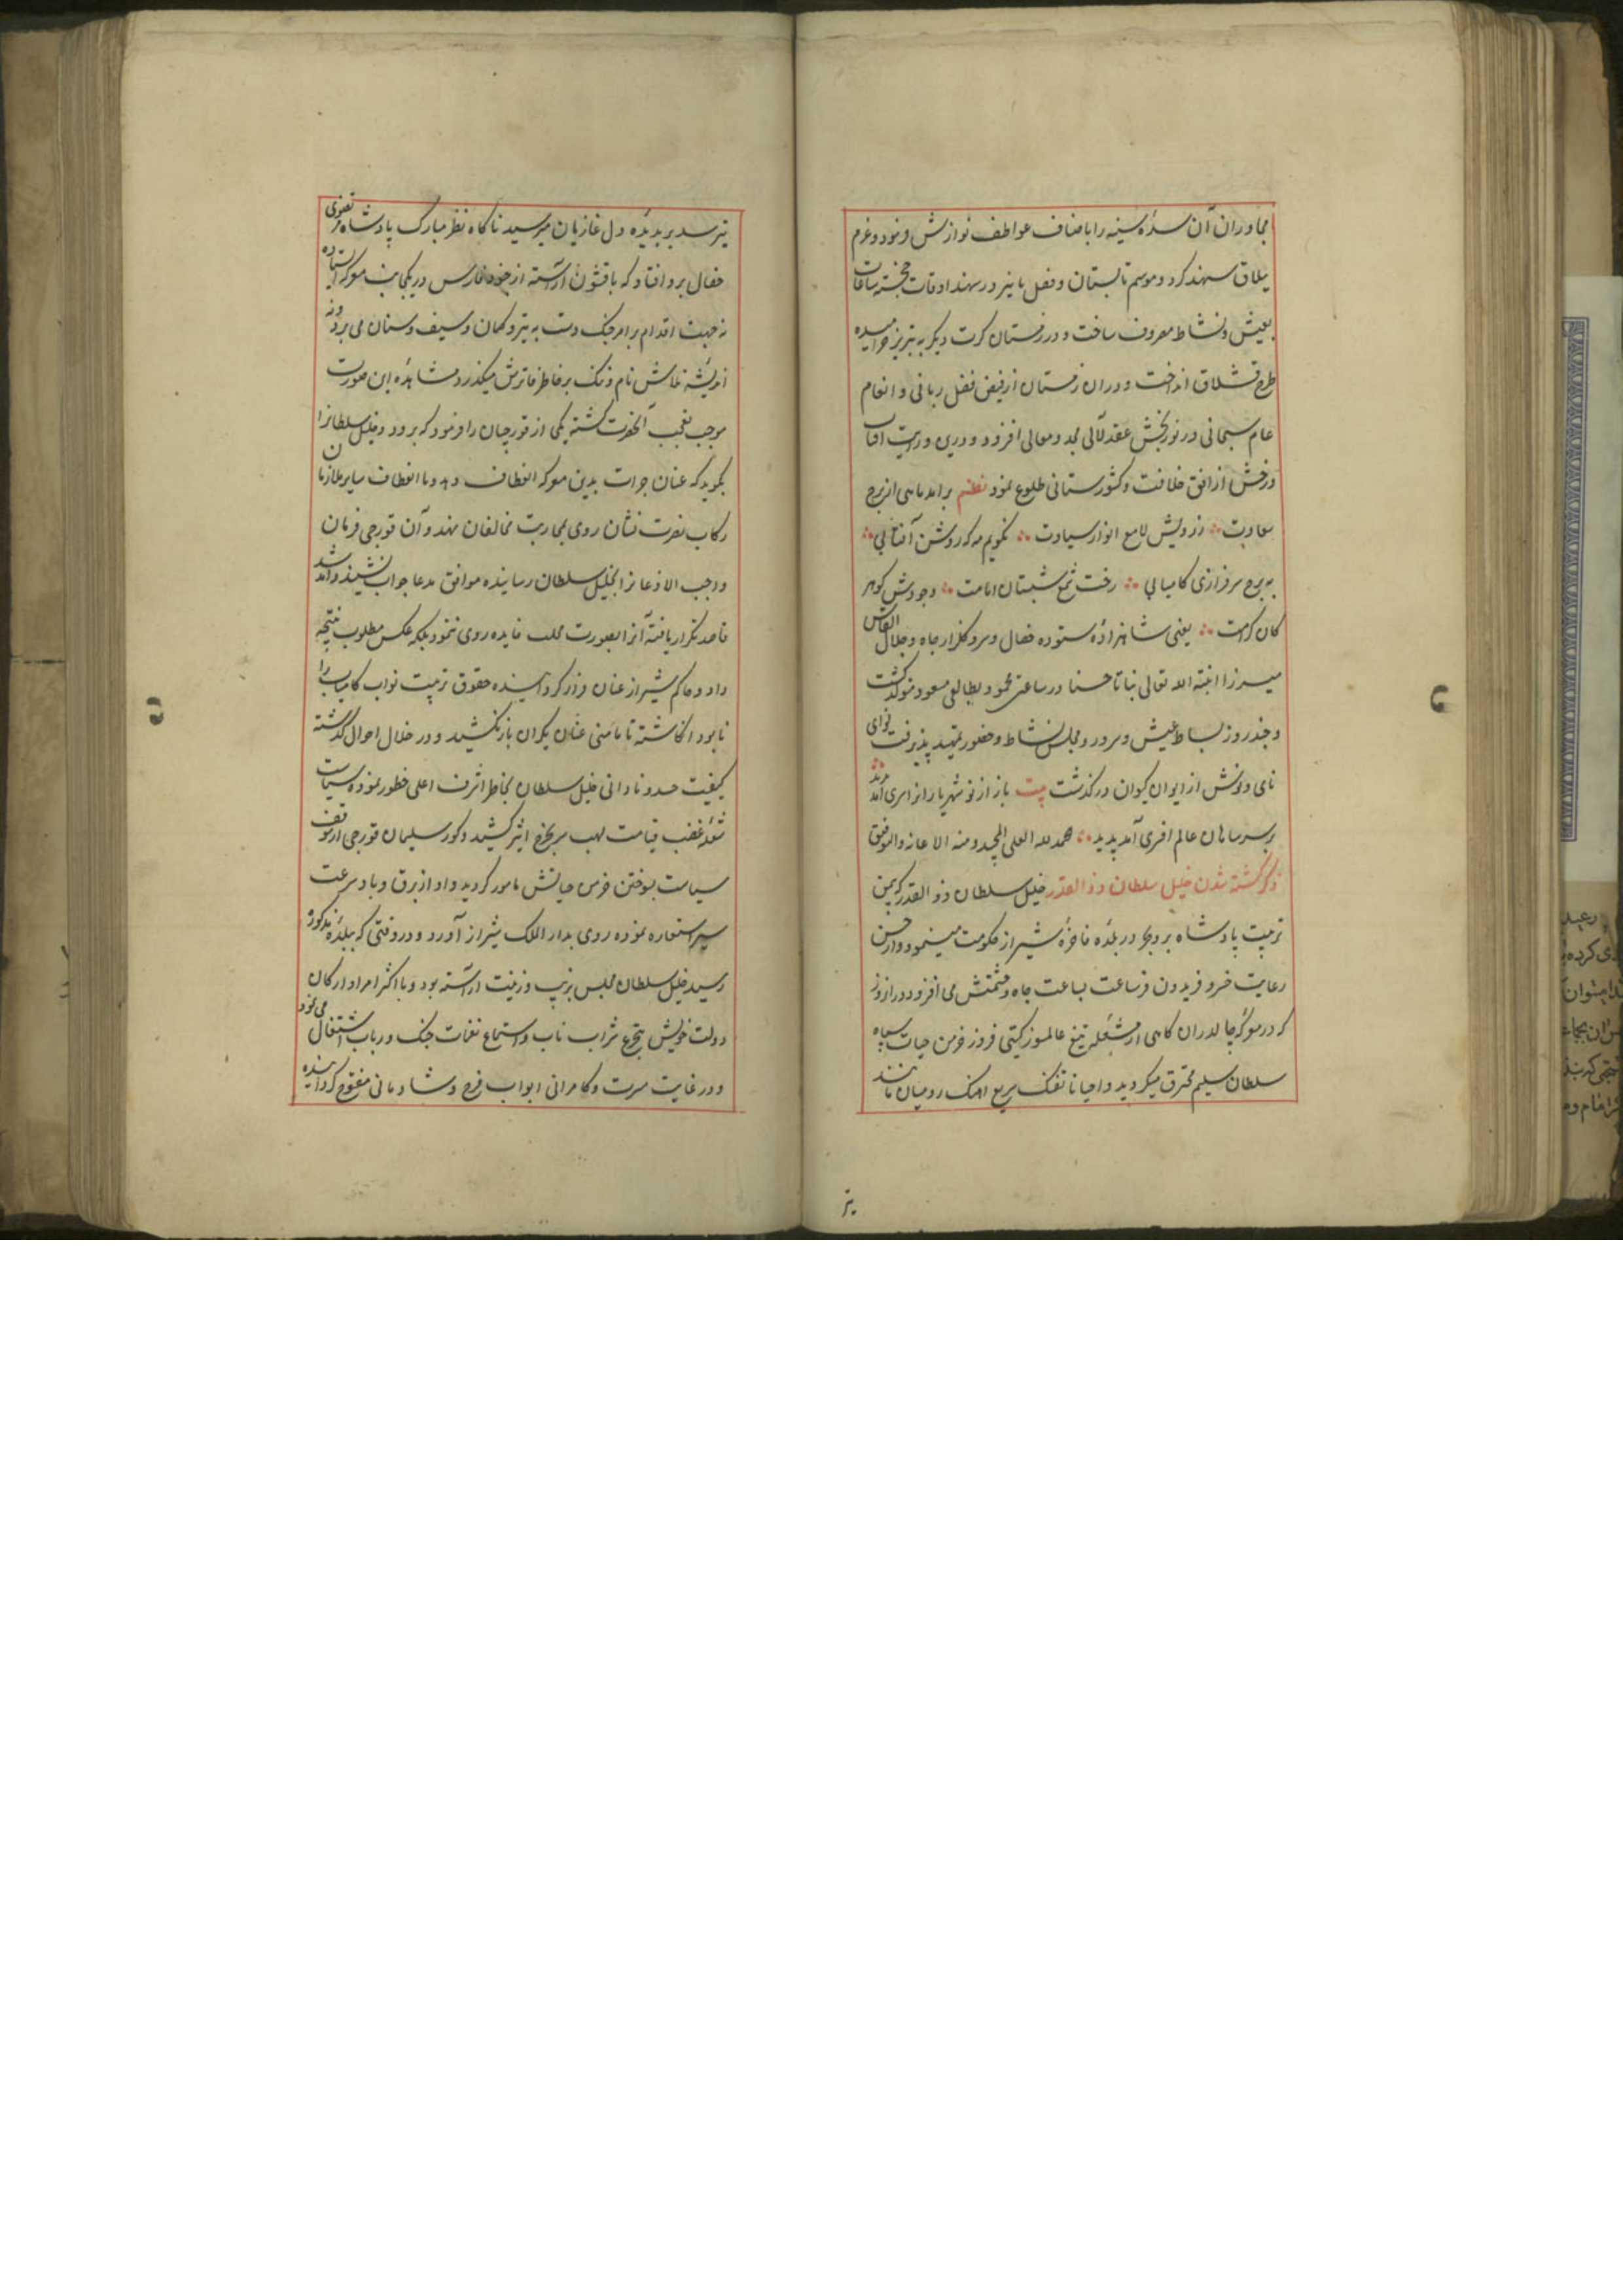 مجاوران آن سده سنیه را باضاف عواطف نوازش فرمود و عزم
ییلاق سهند کرد و موسم تابستان و فصل پاییز در سهند اوقات خجسته ساعات
بعیش و نشاط مصروف ساخت و در زمستان کرت دیکر به تبریز خرامیده
طرح قشلاق انداخت و در ان زمستان از فیض فضل ربانی و انعام
عام سبحانی در نوربخش عقد لآلی مجد و معالی افزود و دری
درخش از افق خلافت و کشورستانی طلوع نمود نظم برامد ماهی از برج
سعادت ز رویش لامع انوار سیادت نکویم مه که روشن آفتابی
به برج سرفرازی کامیابی رخت شمع شبستان امامت وجودش کوهر
کان کرامت یعنی شاهزاده ستوده خصال و سرو کلزار جاه و جلال القاس
میرزا انبته الله تعالی نباتا حسنا در ساعتی محمود بطالعی مسعود متولد کشت
و چند روز بساط عیش و سرور و مجلس نشاط و حضور تمهید پذیرفت نوای
نای و نوش از ایوان کیوان در کذشت بیت باز از نو شهریار
بر سر سامان عالم افری آمد پدید حمد لله العلی المجید و منه الاعانه والتوفیق
ذکر کشته شدن خلیل سلطان ذو القدر خلیل سلطان ذو القدر که بیمن
تربیت پادشاه بر و بحر در بلده فاخره شیراز حکومت مینمود و از حسن
رعایت خسرو فریدون فر ساعت بساعت جاه و حشمتش می افزود در ان روز
که در معرکه چالدران کاهی از مشعله تیغ عالمسوز کیتی فروز خرمن حیات سپاه
سلطان سلیم محترق میکردید و احیانا تفنک سریع اهنک رومیان مانند
تیر
تیر سد بر بدیده دل غازیان میرسید ناکاه نظر مبارک پادشاه مرتضوی
خصال برو افتاد که با قشون آراسته از جنود فارس در یکجانب معرکه ایستاده
نه جهت اقدام بر امر جنک دست به تیر و کمان و سیف و سنان می برد و نه
اندیشه تلاش نام و ننک بر خاطر فاترش میکذرد مشاهده این صورت
موجب تعجب آنحضرت کشته یکی از قورچیان را فرمود که برود و خلیل سلطانرا
بکوید که عنان جرات بدین معرکه انعطاف دهد و با انعطاف سایر ملازمان
رکاب نصرت نشان روی بمحاربت مخالفان نهد و آن قورچی فرمان
واجب الاذعانرا بخلیل سلطان رسانیده موافق مدعا جواب نشنید و آمد شد
قاصد تکرار یافته آنرا بصورت مطلب فایده روی ننمود بلکه عکس مطلوب نتیجه
داد و حاکم شیراز عنان فرار کردانیده حقوق تربیت نواب کامیاب را
نابود انکاشته تا مامنی عنان یکران باز نکشید و در خلال احوال کذشته
کیفیت حسد و نادانی خلیل سلطان بخاطر اشرف اعلی خطور نموده سیاست
شعله غضب قیامت لهب بر چرخ اثیر کشید و کور سلیمان قورچی از موقف
سیاست بسوختن خرمن حیاتش مامور کردید و او از برق و باد سرعت
سیر استعاره نموده روی بدار الملک شیراز آورد و در وقتی که ببلده مذکوره
رسید خلیل سلطان مجلس بزیب و زینت آراسته بود و با اکثر امرا و ارکان
دولت خویش بتجرع شراب ناب و استماع نغمات جنک و رباب اشتغال می نمود
و در غایت مسرت و کامرانی ابواب فرح و شادمانی مفتوح کردانیده